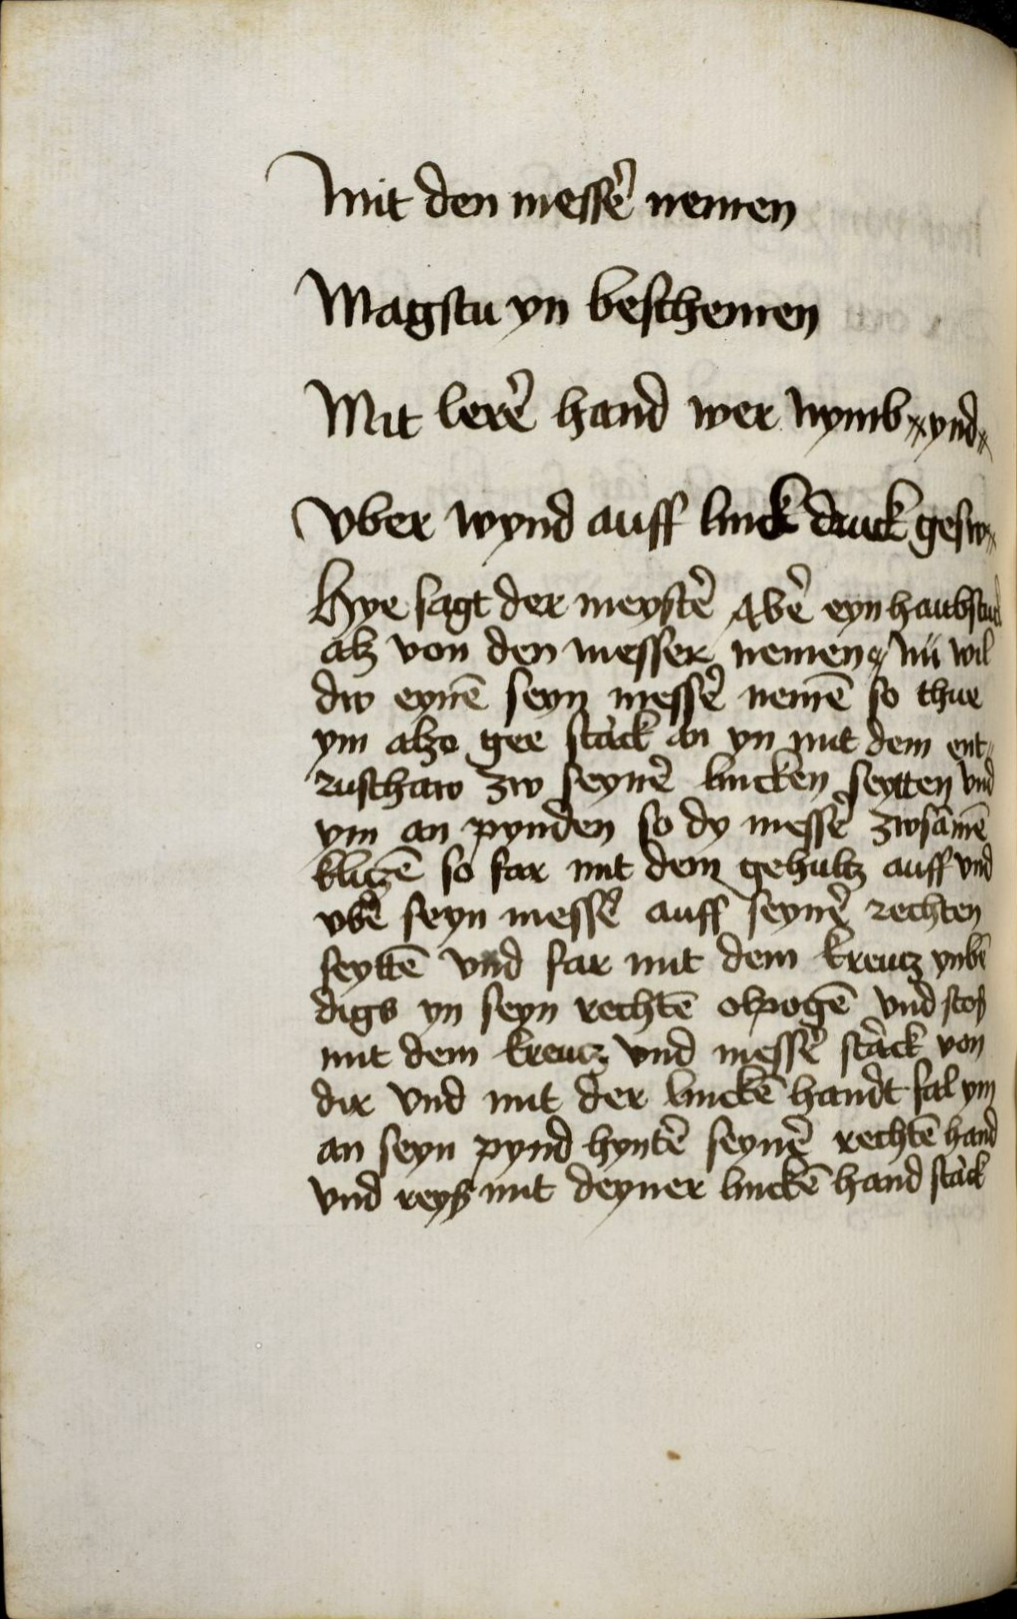 Mit den messe᷑ nemen
Magstu yn beschemen
Mit lere᷑ hand wer nymb ynd
Vber wynd auff linck druck gesw
Hye sagt der meyste᷑ abe᷑ eyn haubstuck
alz von den messer nemen Nü wil
dw eynē seyn messe᷑ nemē so thue
ym alzo gee sta᷑ck an yn mit dem ent
rusthaw zw seyne᷑ lincken seytten vnd
ym an pynden so dy messe᷑ zwsāmē
klitzē so far mit dem gehultz auff vnd
vbe᷑ seyn messe᷑ auff seyne᷑ rechten
seyttē vnd far mit dem kreutz ynbē
digs yn seyn rechtē olpogē vnd stos
mit dem kreutz vnd messe᷑ sta᷑ck von
dir vnd mit der linckē handt fal ym
an seyn pynd hynte᷑ seyne᷑ rechtē hand
vnd reysz mit deyner linckē hand sta᷑ck